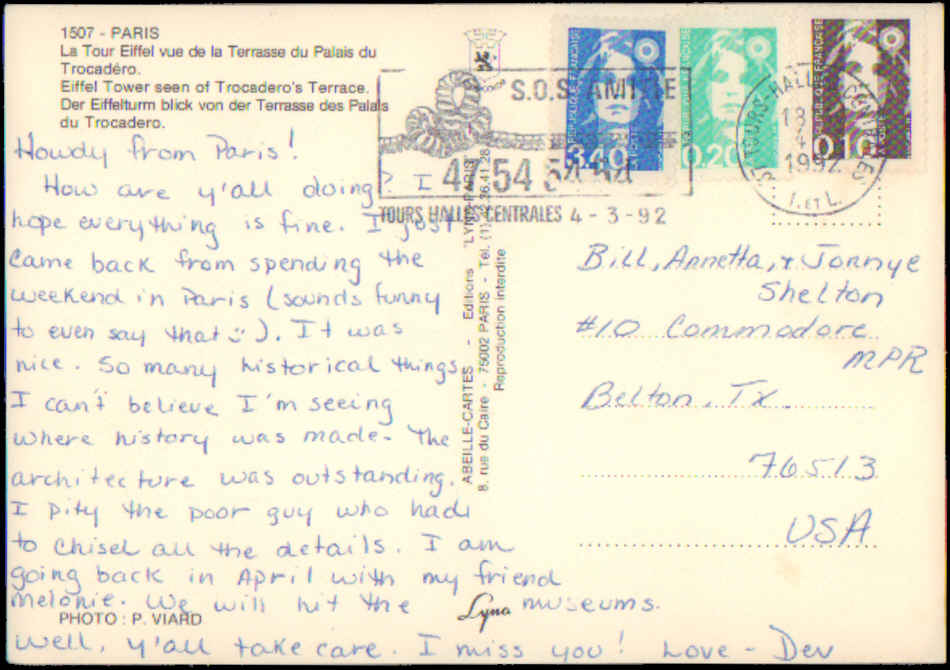 1507 - PARIS
La Tour Eiffel vue de la Terrasse du Palais du
Trocadéro.
Eiffel Tower seen of Trocadero's Terrace.
Der Eiffelturm blick von der Terrasse des Palais
du Trocadero.
Howdy from Paris!
How are y'all doing? I
hope everything is fine. I just
came back from spending the
weekend in Paris (sounds funny
to even say that :-). It was
nice. So many historical things
I can't believe I'm seeing
where history was made. The
architecture was outstanding.
I pity the poor guy who had
to chisel all the details. I am
going back in April with my friend
Melonie. We will hit the museums.
Well, y'all take care. I miss you! Love - Dev
PHOTO : P. VIARD
Lyna
ABEILLE-CARTES - Editions "LYNA-PARIS"
8, rue du Caire - 75002 PARIS - Tél. (1) 42.36.41.28
Reproduction interdite
S.O.S. AMITIE
47 54 54 54
TOURS HALLES CENTRALES 4 - 3 - 92
REPUBLIQUE FRANÇAISE
3.40
0.20
0.10
TOURS-HALLES CENTRALES
18
4
1992
I. ET L.
Bill, Annetta, & Jonnye
Shelton
#10 Commodore
MPR
Belton, Tx.
76513
USA